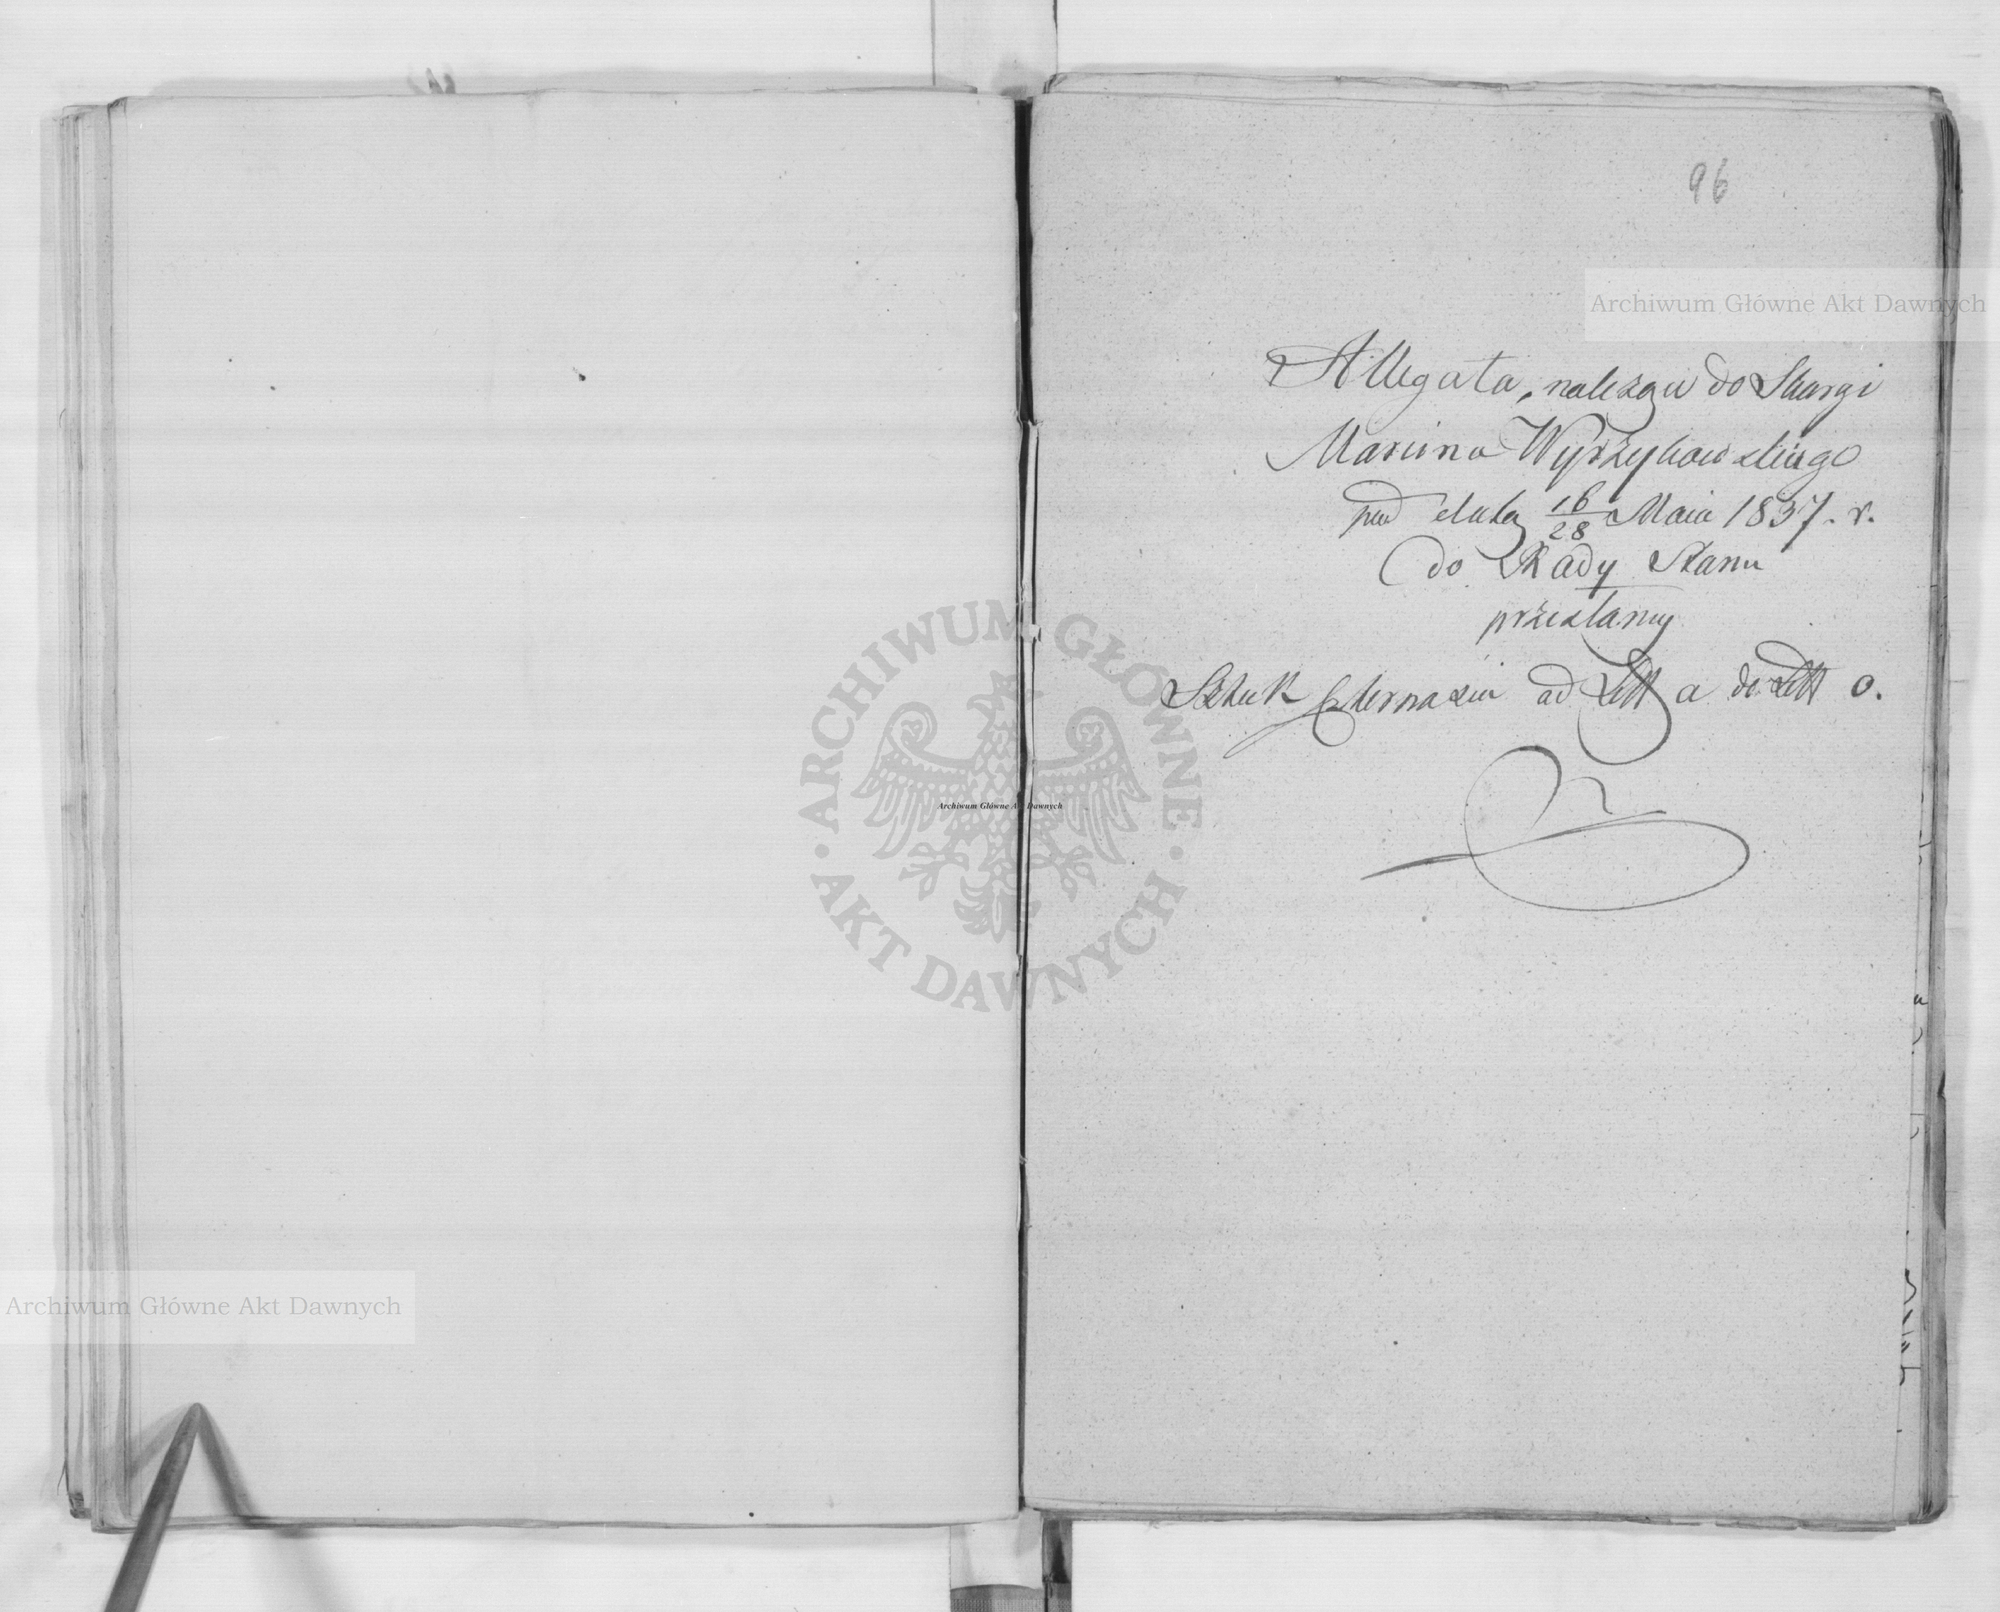 96
Archiwum Główne Akt Dawnych
Allegata, należące do Skargi
Marcina Wyrzykowskiego
pod datą 16/28 Maia 1837. r.
do Rady Stanu
przesłaney
Sztuk Czternaście ad Litt a do Litt o.
ARCHIWUM GŁÓWNE
AKT DAWNYCH
Archiwum Główne Akt Dawnych
Archiwum Główne Akt Dawnych